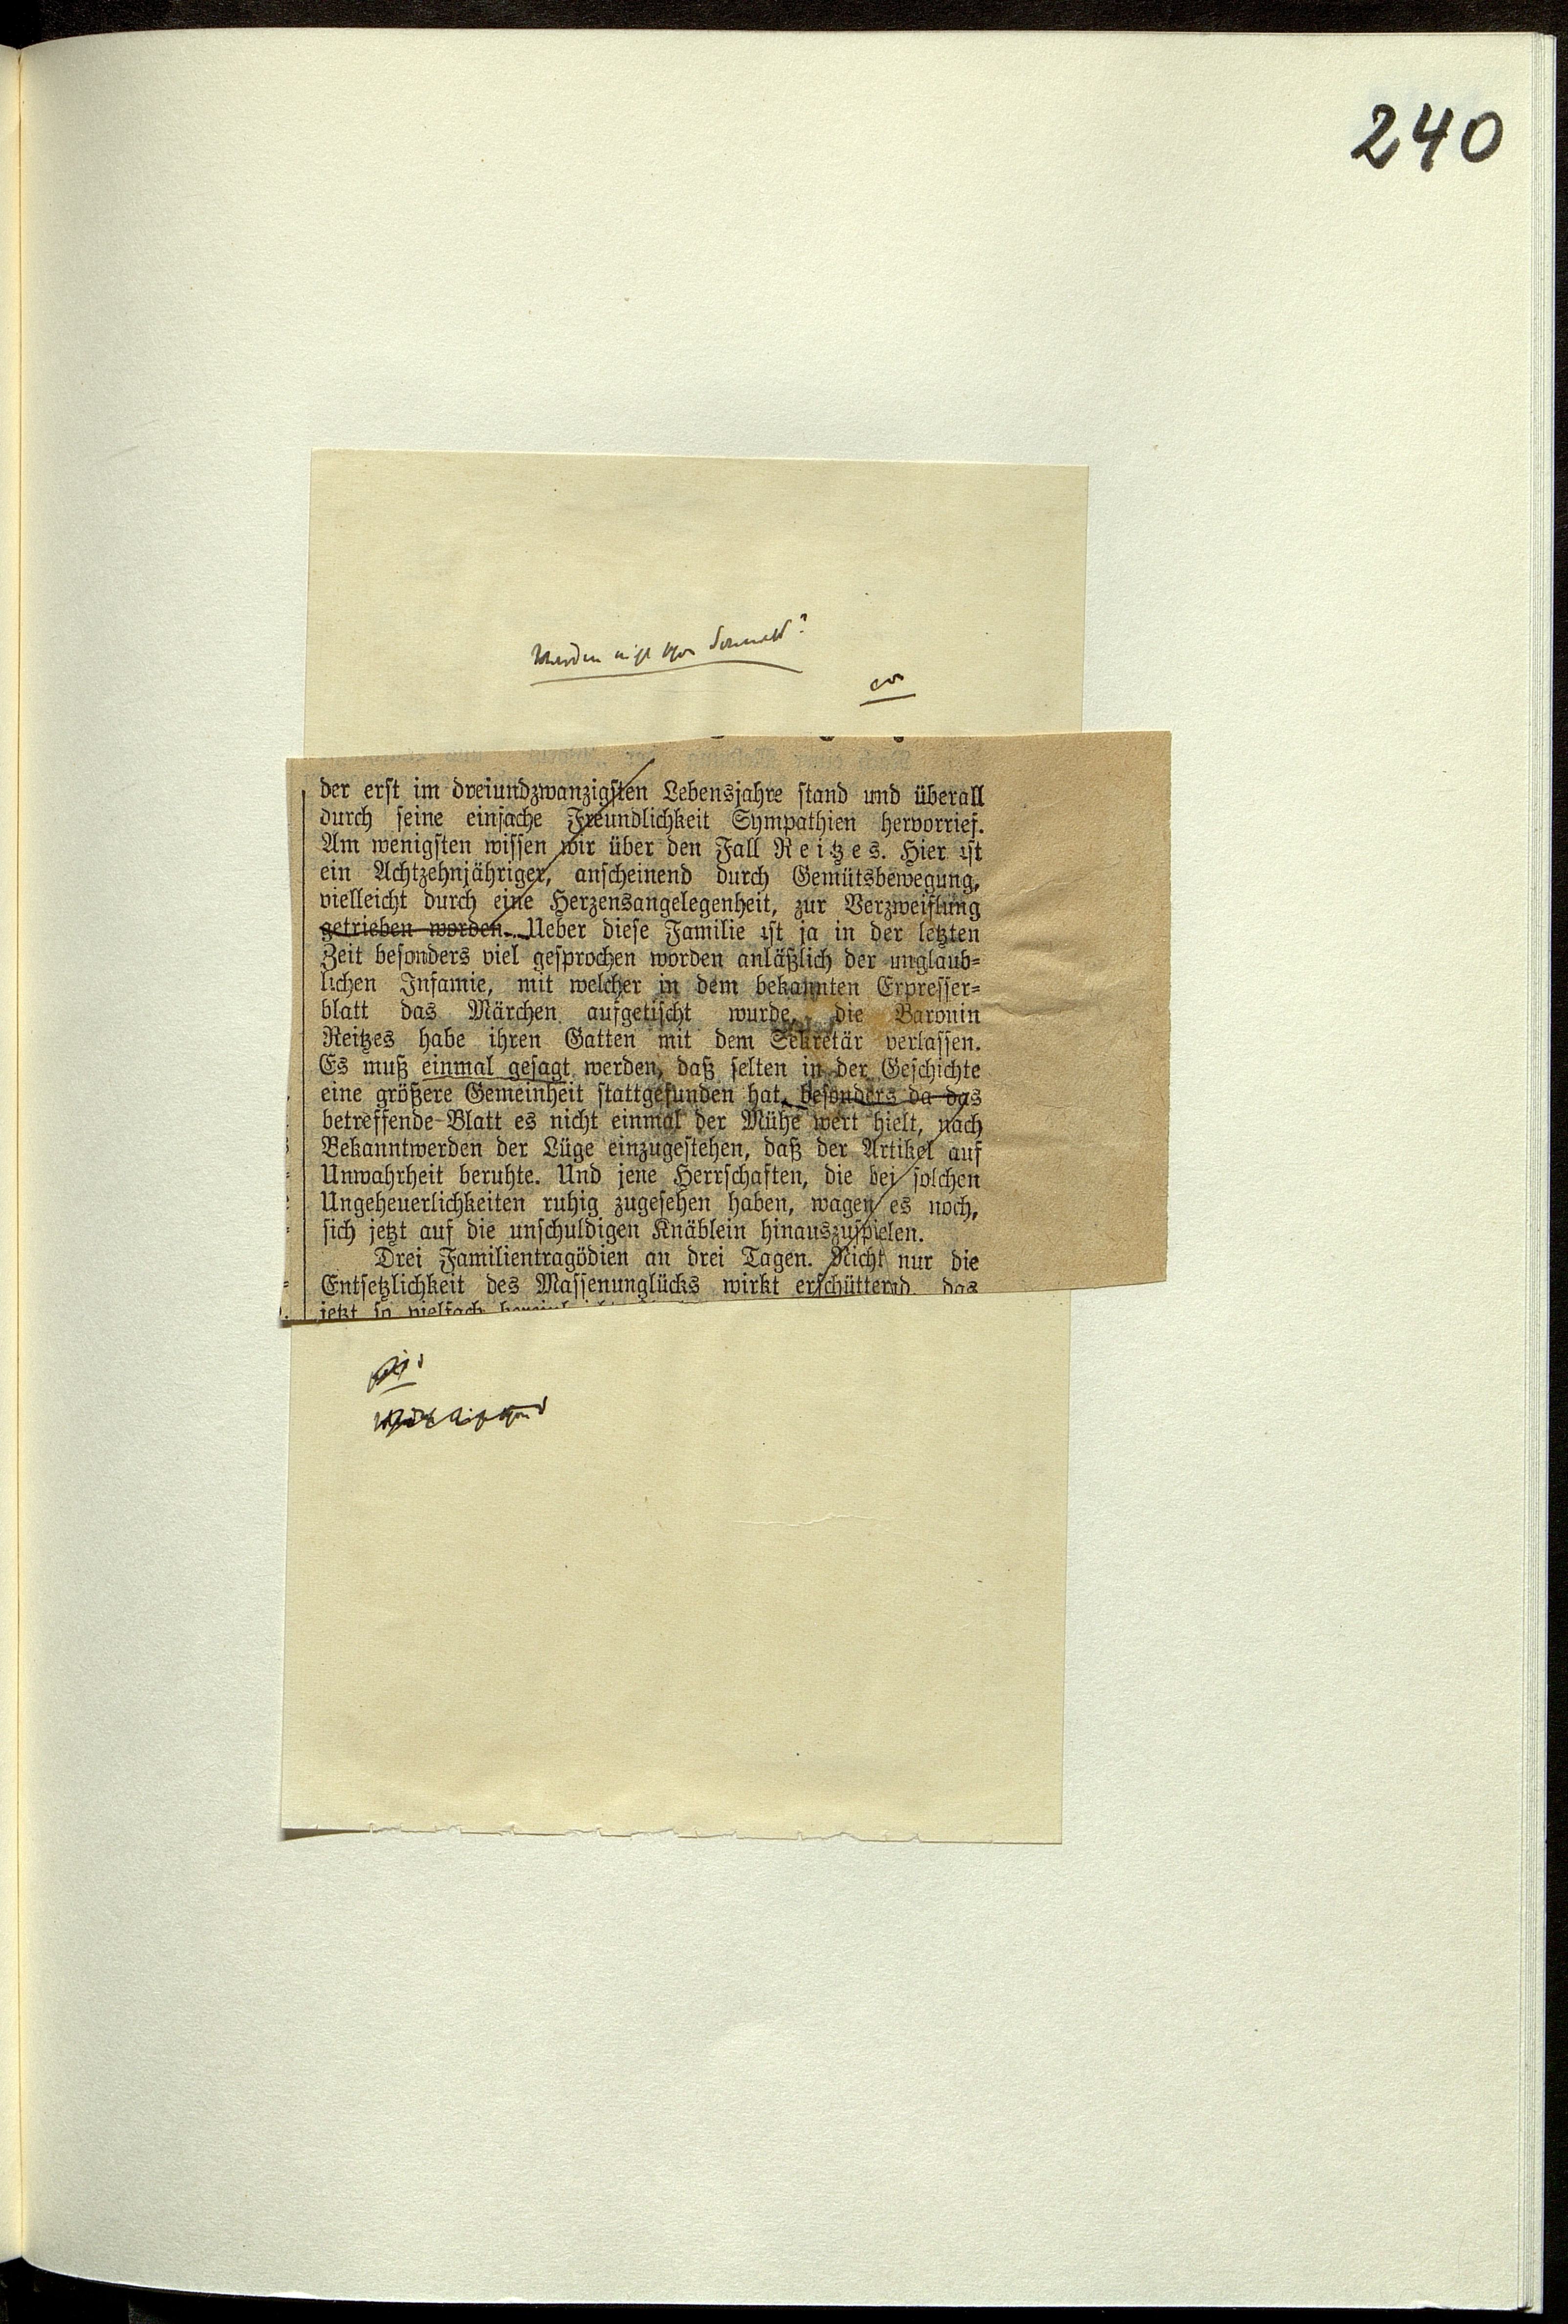 240
der erst im dreiundzwanzigsten Lebensjahre stand und überall
durch seine einfache Freundlichkeit Sympathien hervorrief.
Am wenigsten wissen wir über den Fall Reitzes. Hier ist
ein Achtzehnjähriger, anscheinend durch Gemütsbewegung,
vielleicht durch eine Herzensangelegenheit, zur Verzweiflung
getrieben worden. Ueber diese Familie ist ja in der letzten
Zeit besonders viel gesprochen worden anläßlich der unglaub-
lichen Infamie, mit welcher in dem bekannten Erpresser-
blatt das Märchen aufgetischt wurde, die Baronin
Reitzes habe ihren Gatten mit dem Sekretär verlassen.
Es muß einmal gesagt werden, daß selten in der Geschichte
eine größere Gemeinheit stattgefunden hat, besonders da das
betreffende Blatt es nicht einmal der Mühe wert hielt, nach
Bekanntwerden der Lüge einzugestehen, daß der Artikel auf
Unwahrheit beruhte. Und jene Herrschaften, die bei solchen
Ungeheuerlichkeiten ruhig zugesehen haben, wagen es noch,
sich jetzt auf die unschuldigen Knäblein hinauszuspielen.
Drei Familientragödien an drei Tagen. Nicht nur die
Entsetzlichkeit des Massenunglücks wirkt erschütternd, das
jetzt so vielfach